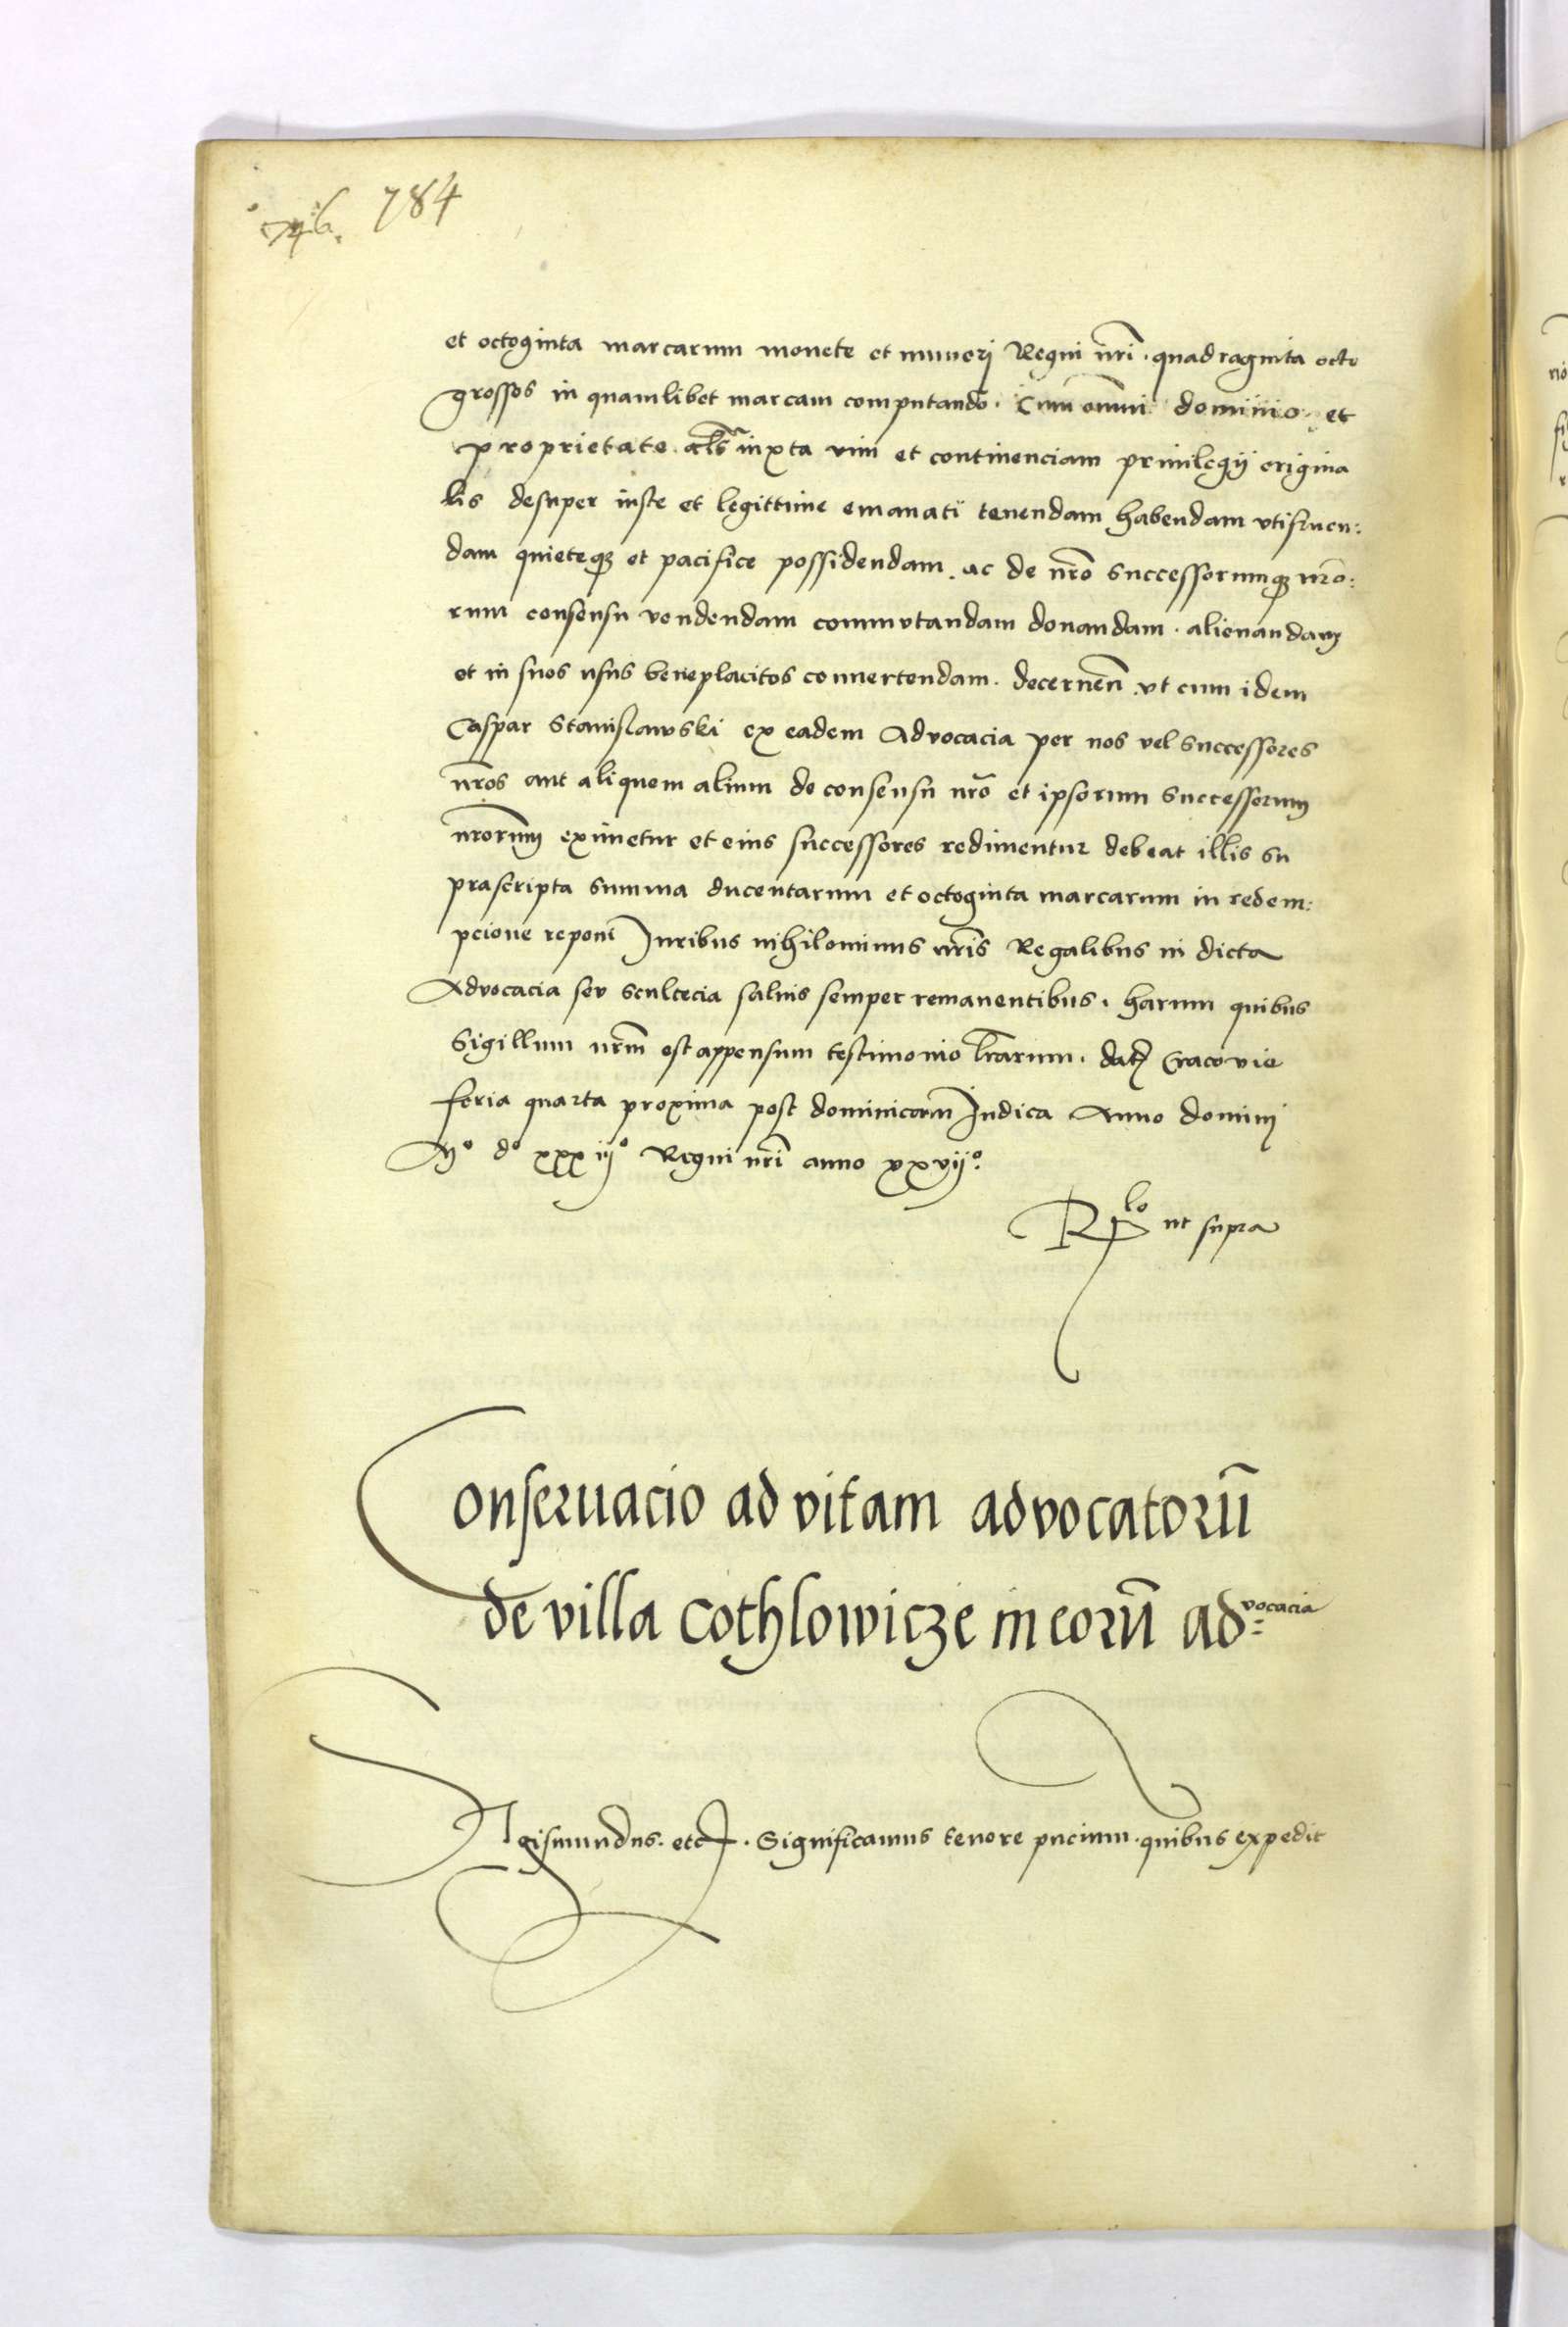 784
et octoginta marcarum monete et numeri Regni nr̃i. quadraginta octo
grossos in quamlibet marcam computando. Cum omni dominio et
proprietate. iuxta vim et continenciam priuilegij origina
lis desuper iuste et legittime emanati tenendam habendam vtifruen:
dam quieteqꝫ et pacifice possidendam. ac de nr̃o successorumqꝫ nr̃o:
rum consensu vendendam commvtandam donandam. alienandam
et in suos usus beneplacitos conuertendam. decernen̄. vt cum idem
Caspar Stanislawski ex eadem Advocacia per nos vel successores
nr̃os aut aliquem alium de consensu nr̃o et ipsorum successorum
nr̃orum eximetur et eius successores redimentur debeat illis su
prascripta summa ducentarum et octoginta marcarum in redem:
pcione reponi Juribus nihilominus nr̃is Regalibus in dicta
Advocacia sev scultecia saluis semper remanentibus. harum quibus
Sigillum nr̃m est appensum testimonio lr̃arum. datꝫ Cracovie
feria quarta proxima post dominicam Judica Anno dominj
Mº dº xxxiijº Regni nr̃i anno xxvijº.
Rp̃lo ut supra
Conseruacio ad vitam advocatorū
de villa Cothlowicze in eorū advocacia
Sigismundus. etc. Significamus tenore pn̄cium. quibus expedit